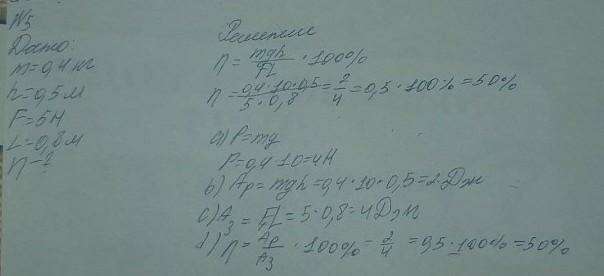 N5
Дано:
m=0,4 кг
h=0,5 м
F=5Н
L=0,8 м
η-?
Решение
η = mgh/FL · 100%
η = 0,4·10·0,5/5·0,8 = 2/4 = 0,5 · 100% = 50%
a) P=mg
P=0,4·10=4Н
b) Ap=mgh=0,4·10·0,5=2Дж
c) Aз=FL=5·0,8=4Дж
d) η=Ap/Aз · 100% = 2/4 = 0,5·100% = 50%